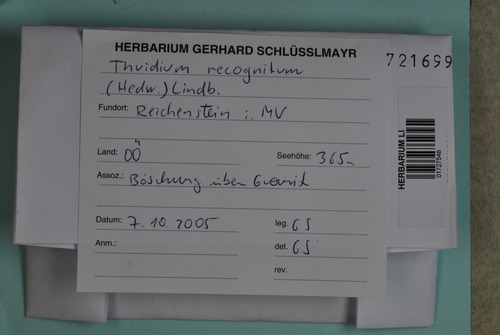 HERBARIUM GERHARD SCHLÜSSLMAYR
Thuidium recognitum
(Hedw.) Lindb.
Fundort: Reichenstein i. MV
Land: OÖ Seehöhe: 365m
Assoz.: Böschung über Granit
Datum: 7.10.2005 leg. GS
Anm.: det. GS
rev.
721699
HERBARIUM LI
01727548